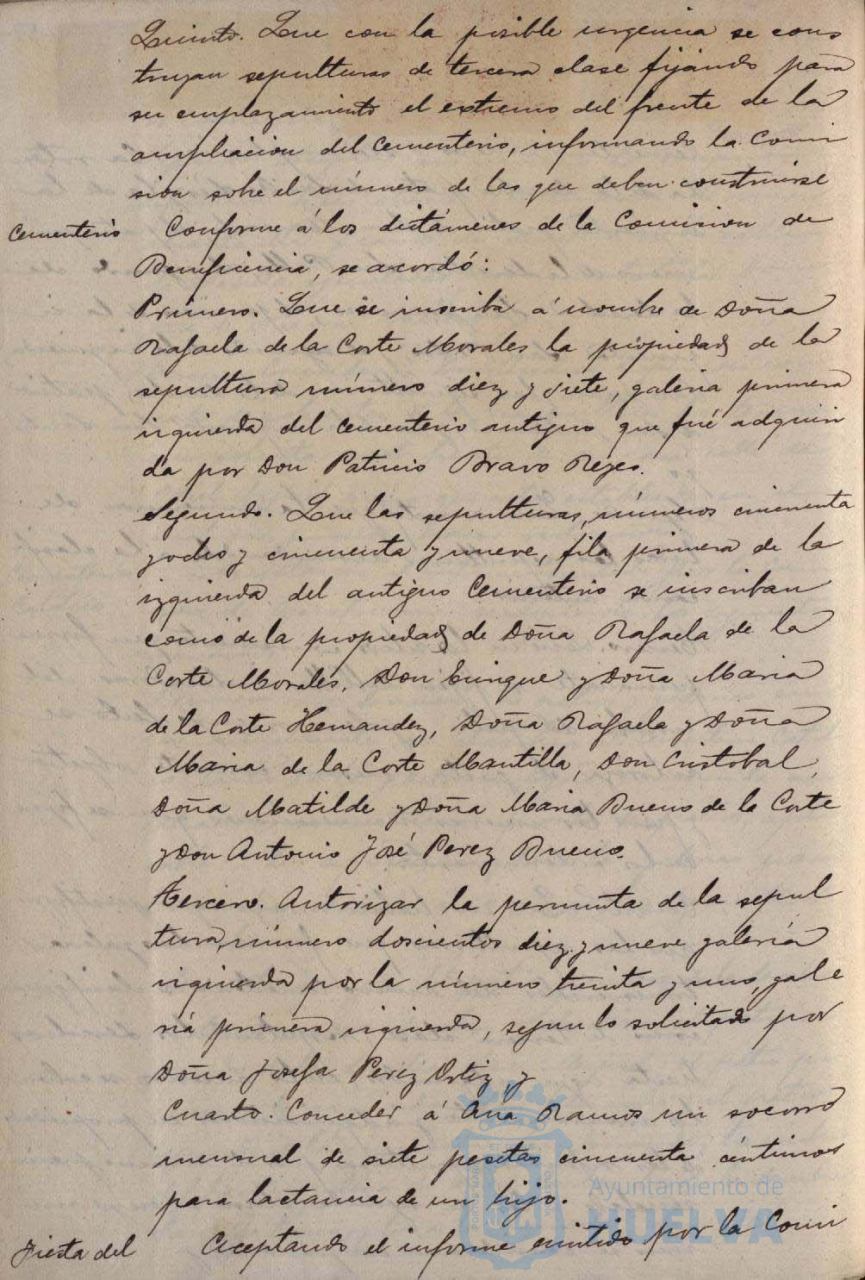 Quinto. Que con la posible urgencia se cons
truyan sepulturas de tercera clase fijando para
su emplazamiento el extremo del frente de la
ampliacion del Cementerio, informando la Comi
sion sobre el número de las que deben construirse
Cementerio Conforme á los dictámenes de la Comision de
Beneficencia, se acordó:
Primero. Que se inscriba á nombre de Doña
Rafaela de la Corte Morales la propiedad de la
sepultura número diez y siete, galeria primera
izquierda del cementerio antiguo que fué adquiri
da por Don Patricio Bravo Reyes.
Segundo. Que las sepulturas, números cincuenta
y ocho y cincuenta y nueve, fila primera de la
izquierda del antiguo Cementerio se inscriban
como de la propiedad de Doña Rafaela de la
Corte Morales, Don Enrique y Doña Maria
de la Corte Hernandez, Doña Rafaela y Doña
Maria de la Corte Mantilla, Don Cristobal,
Doña Matilde y Doña Maria Bueno de la Corte
y Don Antonio José Perez Bueno.
Tercero. Autorizar la permuta de la sepul
tura, número doscientos diez y nueve galería
izquierda por la número treinta y uno, gale
ría primera izquierda, segun lo solicitado por
Doña Josefa Perez Ortiz, y
Cuarto. Conceder á Ana Ramos un socorro
mensual de siete pesetas cincuenta céntimos
para lactancia de un hijo.
Ayuntamiento de
HUELVA
Fiesta del Aceptando el informe emitido por la Comi